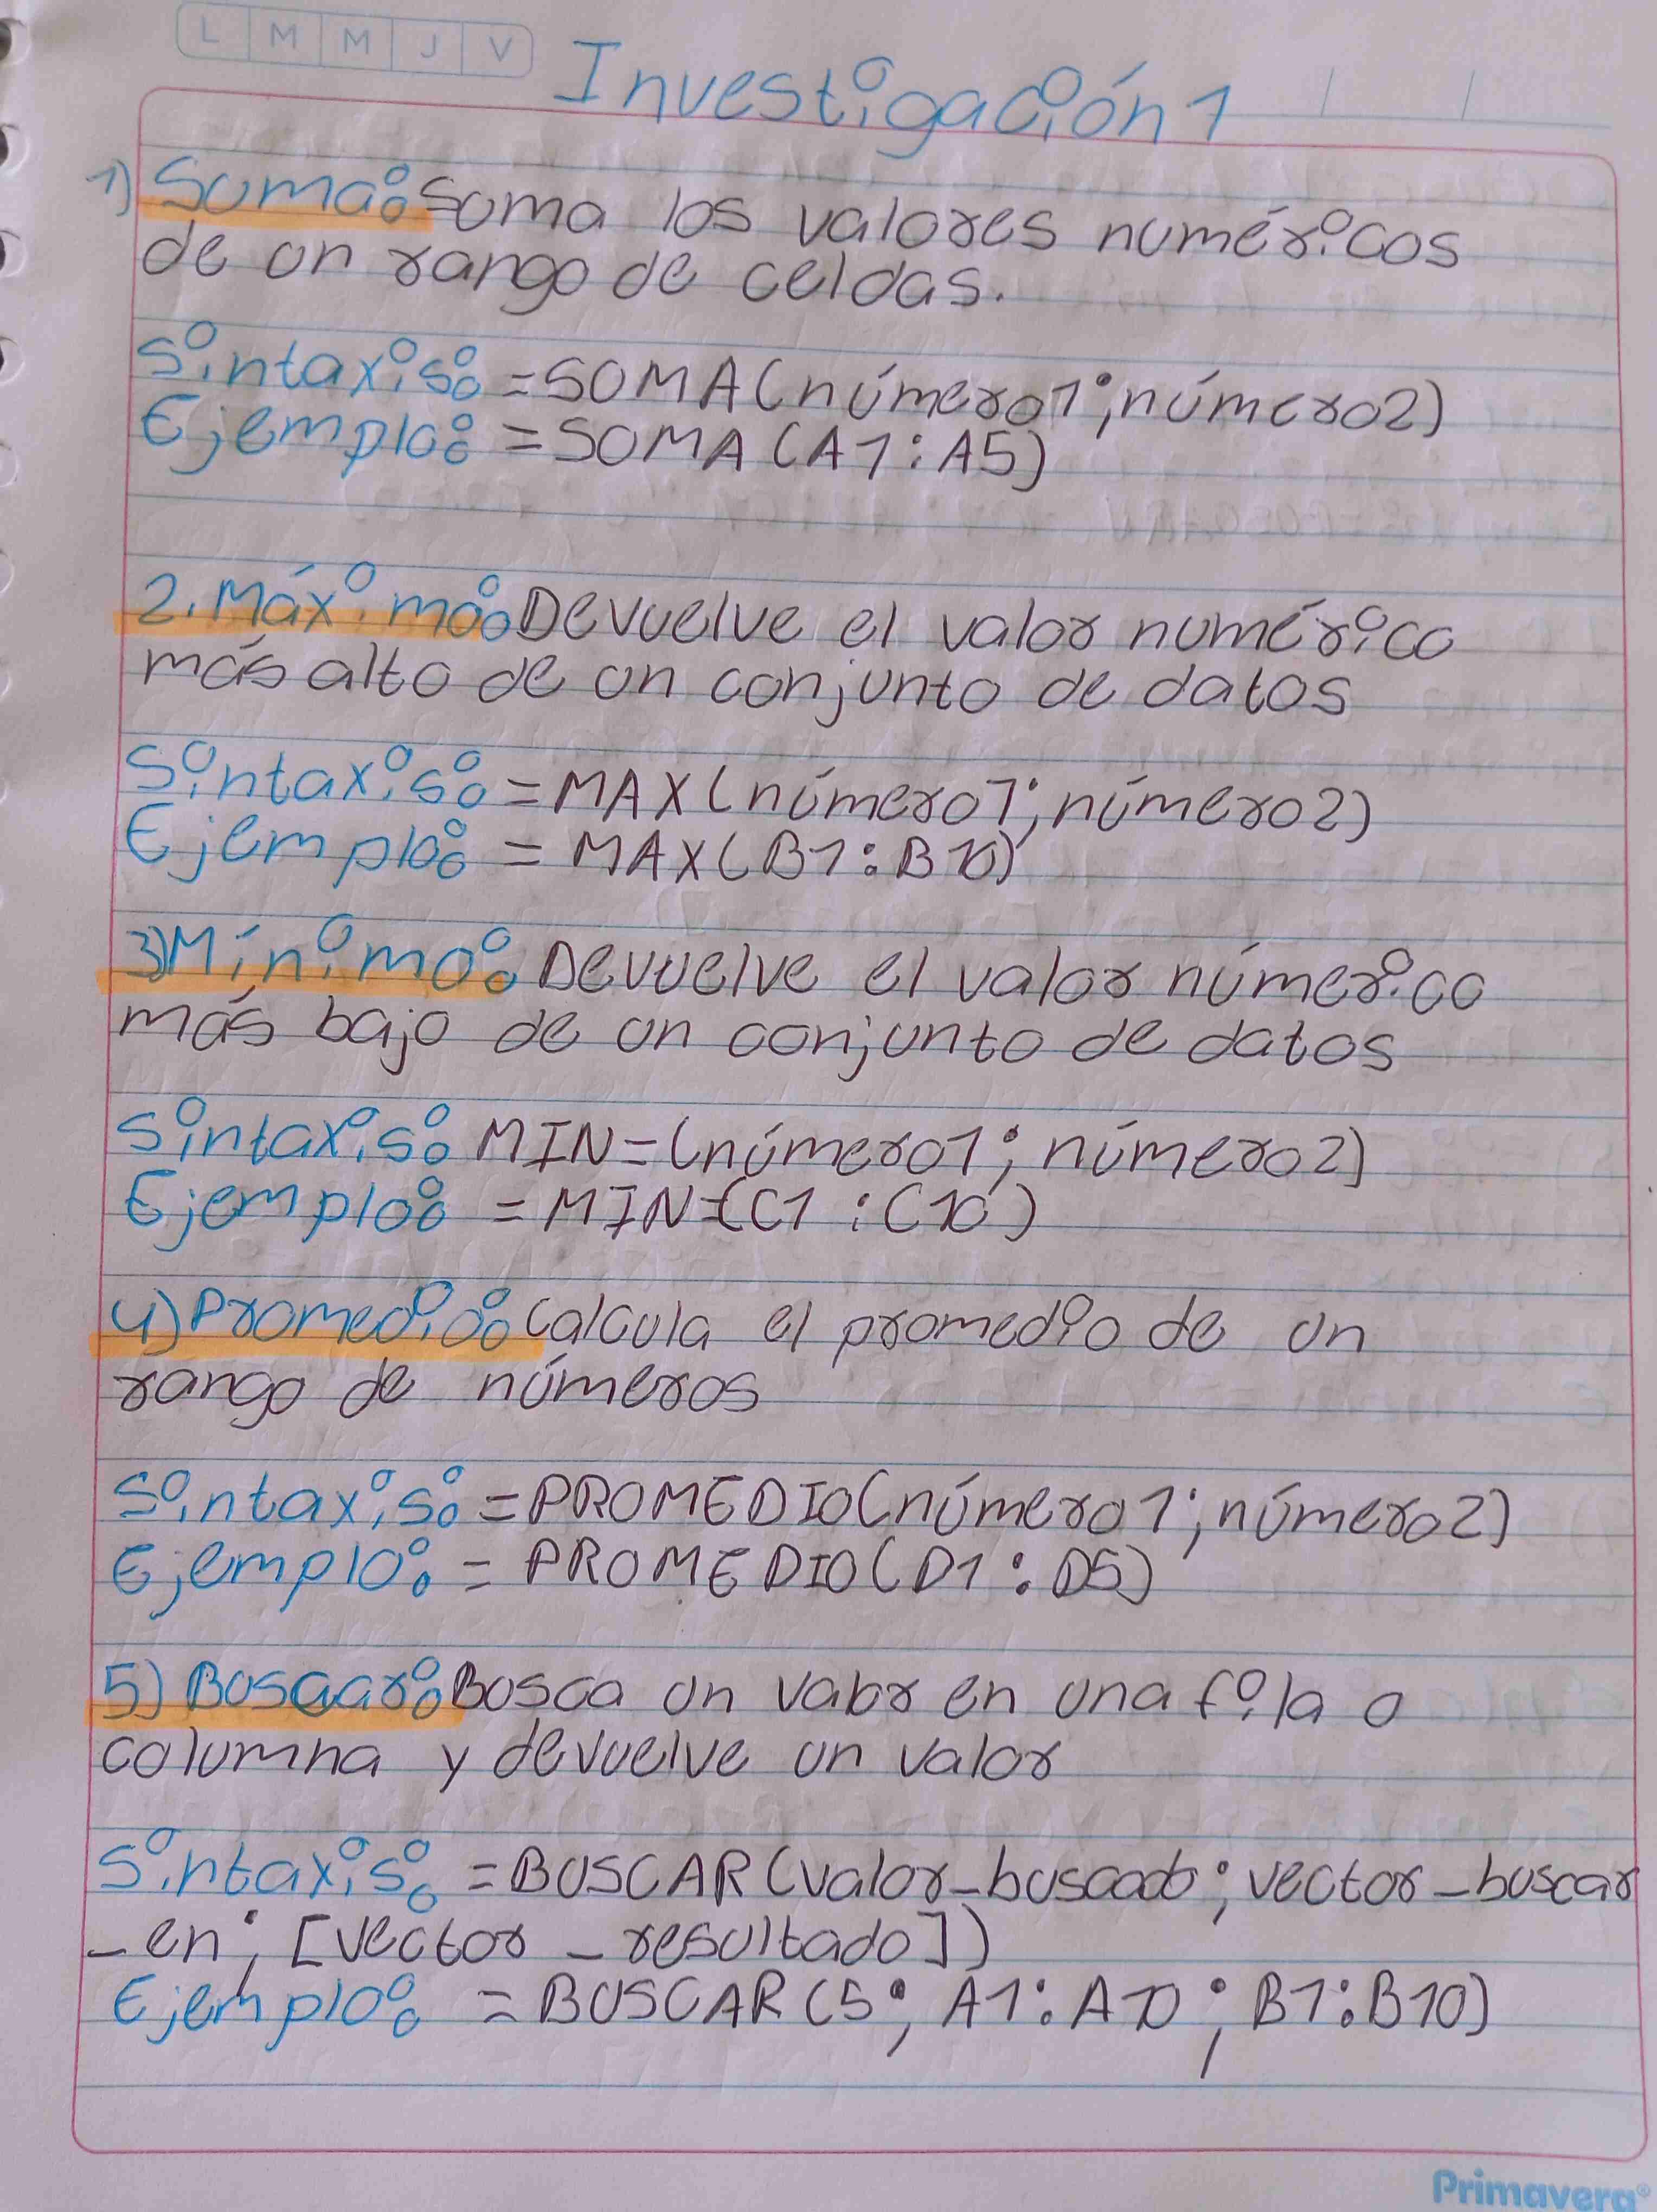 L M M J V
Investigación 1
1) Suma: Suma los valores numéricos
de un rango de celdas.
Sintaxis: =SUMA(número1;número2)
Ejemplo: =SUMA(A1:A5)
2. Máximo: Devuelve el valor numérico
más alto de un conjunto de datos
Sintaxis: =MAX(número1;número2)
Ejemplo: =MAX(B1:B10)
3) Mínimo: Devuelve el valor númerico
más bajo de un conjunto de datos
Sintaxis: MIN=(número1; número2)
Ejemplo: =MIN=(C1:C10)
4) Promedio: Calcula el promedio de un
rango de números
Sintaxis: =PROMEDIO(número1;número2)
Ejemplo: =PROMEDIO(D1:D5)
5) Buscar: Busca un valor en una fila o
columna y devuelve un valor
Sintaxis: =BUSCAR(valor_buscado; vector_buscar
_en; [vector_resultado])
Ejemplo: =BUSCAR(5; A1:A10; B1:B10)
Primavera